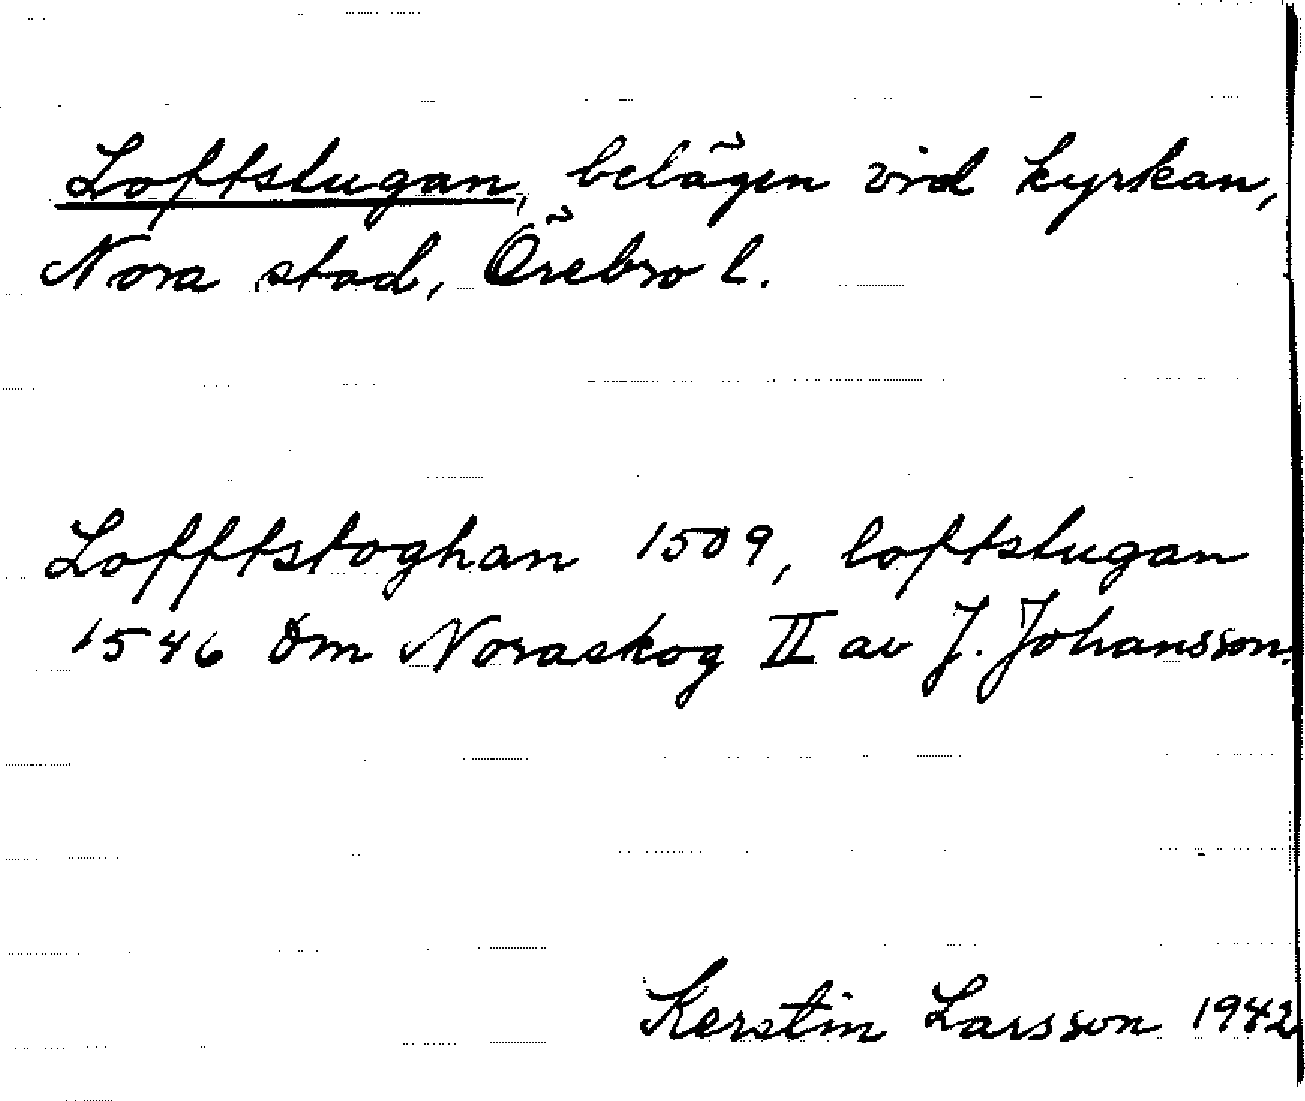 Loftstugan, belägen vid kyrkan,
Nora stad, Örebro l.
Lofftstoghan 1509, loftstugan
1546 Om Noraskog II av J. Johansson.
Kerstin Larsson 1942